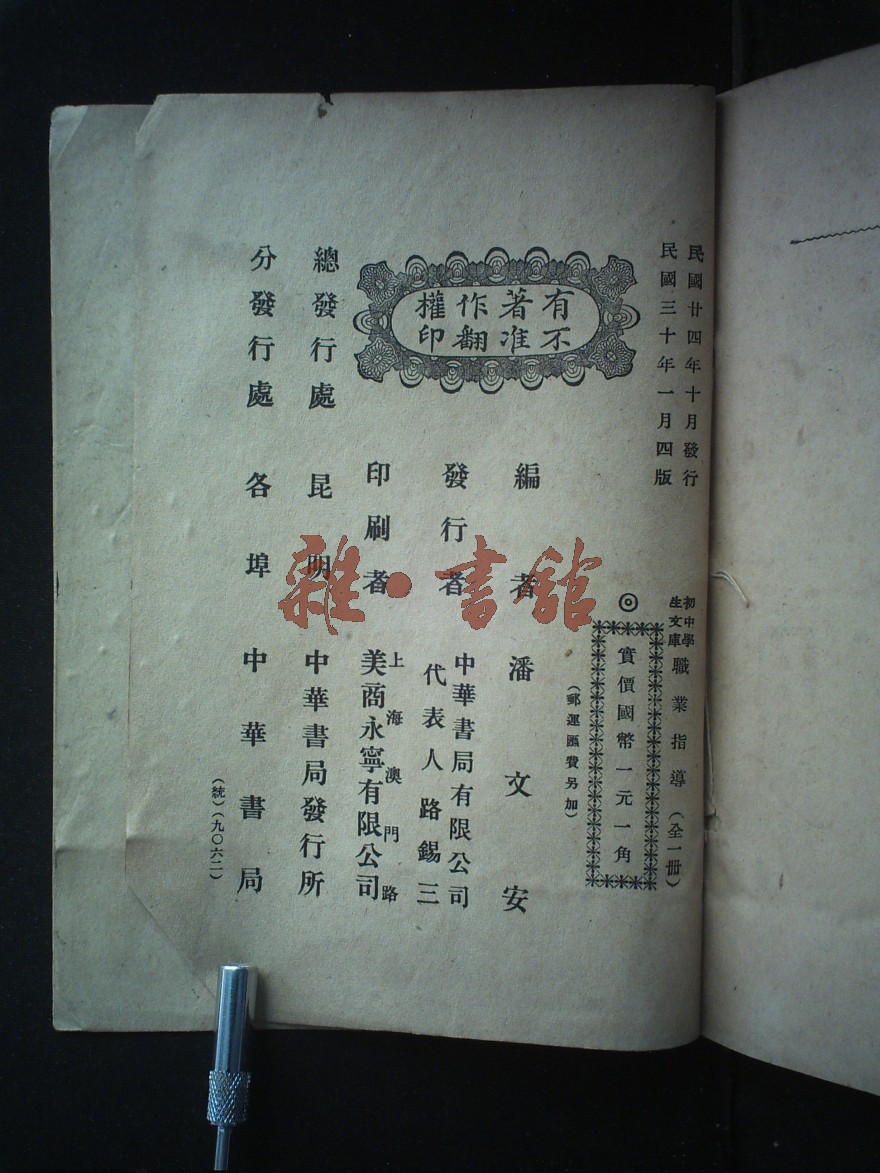 民國廿四年十月發行
民國三十年一月四版
初中學生文庫 職業指導（全一冊）
◎實價國幣一元一角
（郵運匯費另加）
有著作權
不准翻印
編者 潘文安
發行者 中華書局有限公司
代表人路錫三
印刷者 上海澳門路
美商永寧有限公司
總發行處 昆明 中華書局發行所
分發行處 各埠 中華書局
（統）（九〇六二）
雜·書館